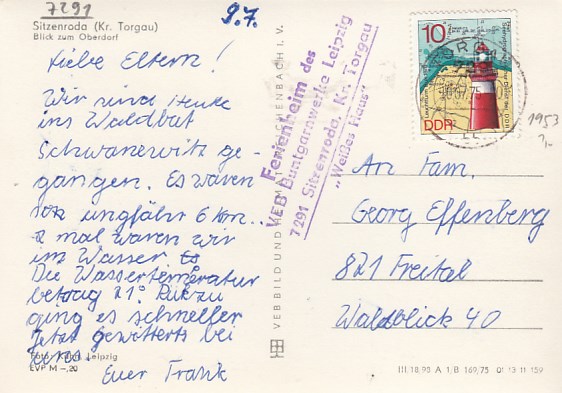 7291
Sitzenroda (Kr. Torgau)
Blick zum Oberdorf
9.7.
Liebe Eltern!
Wir sind Heute
ins Waldbat
Schwanewitz ge-
gangen. Es waren
ungfähr 6 km.
2 mal waren wir
im Wasser.
Die Wassertemperatur
betrag 21°. Rükzu
ging es schneller
Jetzt gewitterts bei
Euer Frank
Leipzig
EVP M –,20
VEB BILD UND HEIMAT REICHENBACH I. V.
Ferienheim des
VEB Buntgarnwerke Leipzig
7291 Sitzenroda, Kr. Torgau
„Weißes Haus"
10
DDR
1953
An Fam.
Georg Effenberg
821 Freital
Waldblick 40
III.18.90 A 1/B 169/75 01 13 11 159